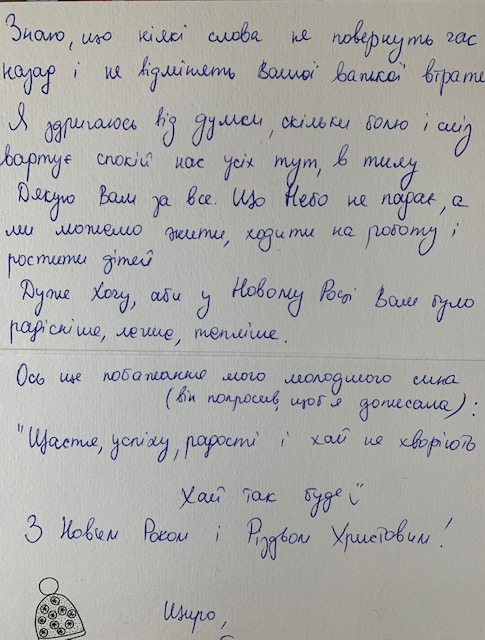 Знаю, що ніякі слова не повернуть час
назад і не відмінять Вашої важкої втрати
Я здригаюсь від думки, скільки болю і сліз
вартує спокій нас усіх тут, в тилу
Дякую Вам за все. Що Небо не падає, а
ми можемо жити, ходити на роботу і
ростити дітей
Дуже хочу, аби у Новому Році Вам було
радісніше, легше, тепліше.
Ось ще побажання мого молодшого сина
(він попросив, щоб я дописала):
"Щастя, успіху, радості і хай не хворіють
Хай так буде
З Новим Роком і Різдвом Христовим!
Щиро,